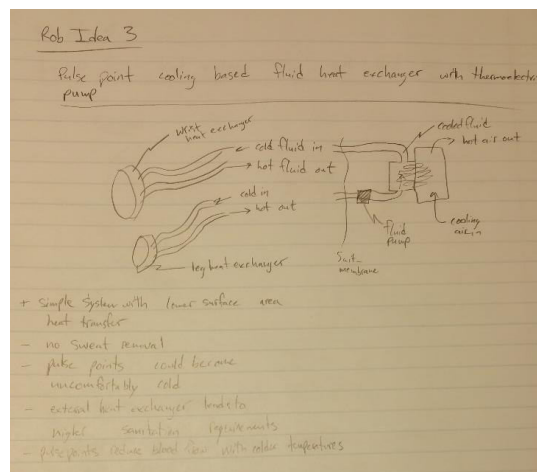 Rob Idea 3
Pulse point cooling based fluid heat exchanger with thermoelectric
pump
wrist
heat exchanger
cold fluid in
hot fluid out
cooled fluid
hot air out
cold in
hot out
leg heat exchanger
Suit
membrane
fluid
pump
cooling
air in
+ simple system with lower surface area
heat transfer
- no sweat removal
- pulse points could become
uncomfortably cold
- external heat exchanger leads to
higher requirements
- pulse points reduce blood flow with colder temperatures